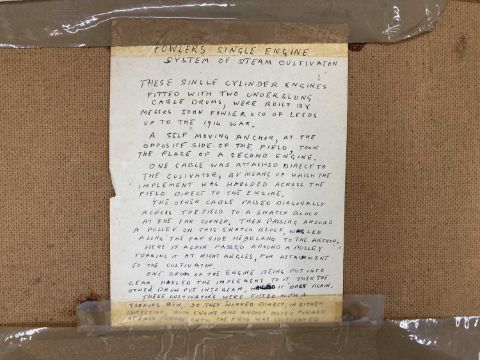 FOWLERS SINGLE ENGINE
SYSTEM OF STEAM CULTIVATON
THESE SINGLE CYLINDER ENGINES
FITTED WITH TWO UNDERSLUNG
CABLE DRUMS, WERE BUILT BY
MESSRS JOHN FOWLER & CO OF LEEDS
UP TO THE 1914 WAR.
A SELF MOVING ANCHOR, AT THE
OPPOSITE SIDE OF THE FIELD, TOOK
THE PLACE OF A SECOND ENGINE.
ONE CABLE WAS ATTACHED DIRECT TO
THE CULIVATOR, BY MEANS OF WHICH THE
IMPLEMENT WAS HAULDED ACROSS THE
FIELD DIRECT TO THE ENGINE.
THE OTHER CABLE PASSED DIAGONALLY
ACROSS THE FIELD TO A SNATCH BLOCK
AT THE FAR CORNER, THEN PASSING AROUND
A PULLEY ON THIS SNATCH BLOCK,
ALONG THE FAR SIDE HEADLAND TO THE ANCHOR.
HERE IT AGAIN PASSED AROUND A PULLEY
TURNING IT AT RIGHT ANGLES, FOR ATTACHMENT
TO THE CULIVATOR.
ONE DRUM OF THE ENGINE BEING PUT INTO
GEAR HAULED THE IMPLEMENT TO IT THEN THE
OTHER DRUM PUT INTO GEAR, IT BACK AGAIN.
THESE CULTIVATORS WERE FITTED WITH A
TURNING BOW, SO THEY WORKED DIRECT IN EITHER
DIRECTION, BOTH ENGINE AND ANCHOR MOVED FORWARD
UNTIL THE FIELD WAS CULTIVATED